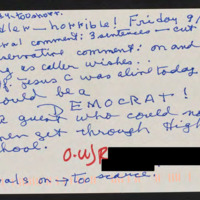 horrible! Friday 9/
comment: 3 sentences — cut
servative comment: on and
as caller wishes..
Jesus C was alive today
ould be a
DEMOCRAT!
a guest who could no
en get through High
chool.
O-WJR
als on → too scarce.